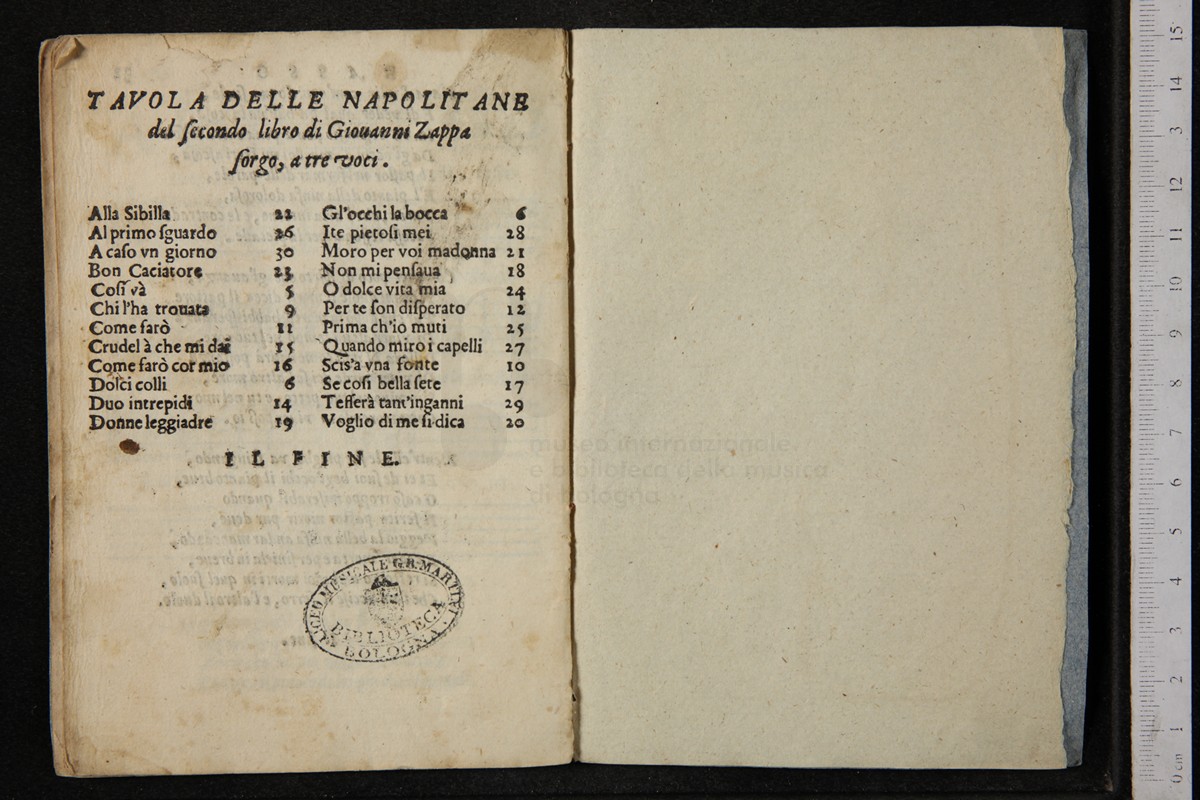 TAVOLA DELLE NAPOLITANE
del ſecondo libro di Giouanni Zappa
ſorgo, a tre voci.
Alla Sibilla 22
Al primo ſguardo 26
A caſo vn giorno 30
Bon Caciatore 23
Coſi và 5
Chi l'ha trouata 9
Come farò 11
Crudel à che mi dai 15
Come farò cor mio 16
Dolci colli 6
Duo intrepidi 14
Donne leggiadre 19
Gl'occhi la bocca 6
Ite pietoſi mei 28
Moro per voi madonna 21
Non mi penſaua 18
O dolce vita mia 24
Per te ſon diſperato 12
Prima ch'io muti 25
Quando miro i capelli 27
Scis'a vna fonte 10
Se coſi bella ſete 17
Teſſerà tant'inganni 29
Voglio di me ſi dica 20
IL FINE.
LICEO MUSICALE G.B. MARTINI
BIBLIOTECA
BOLOGNA
museo internazionale
e biblioteca della musica
di bologna
15
14
13
12
11
10
9
8
7
6
5
4
3
2
1
0 cm